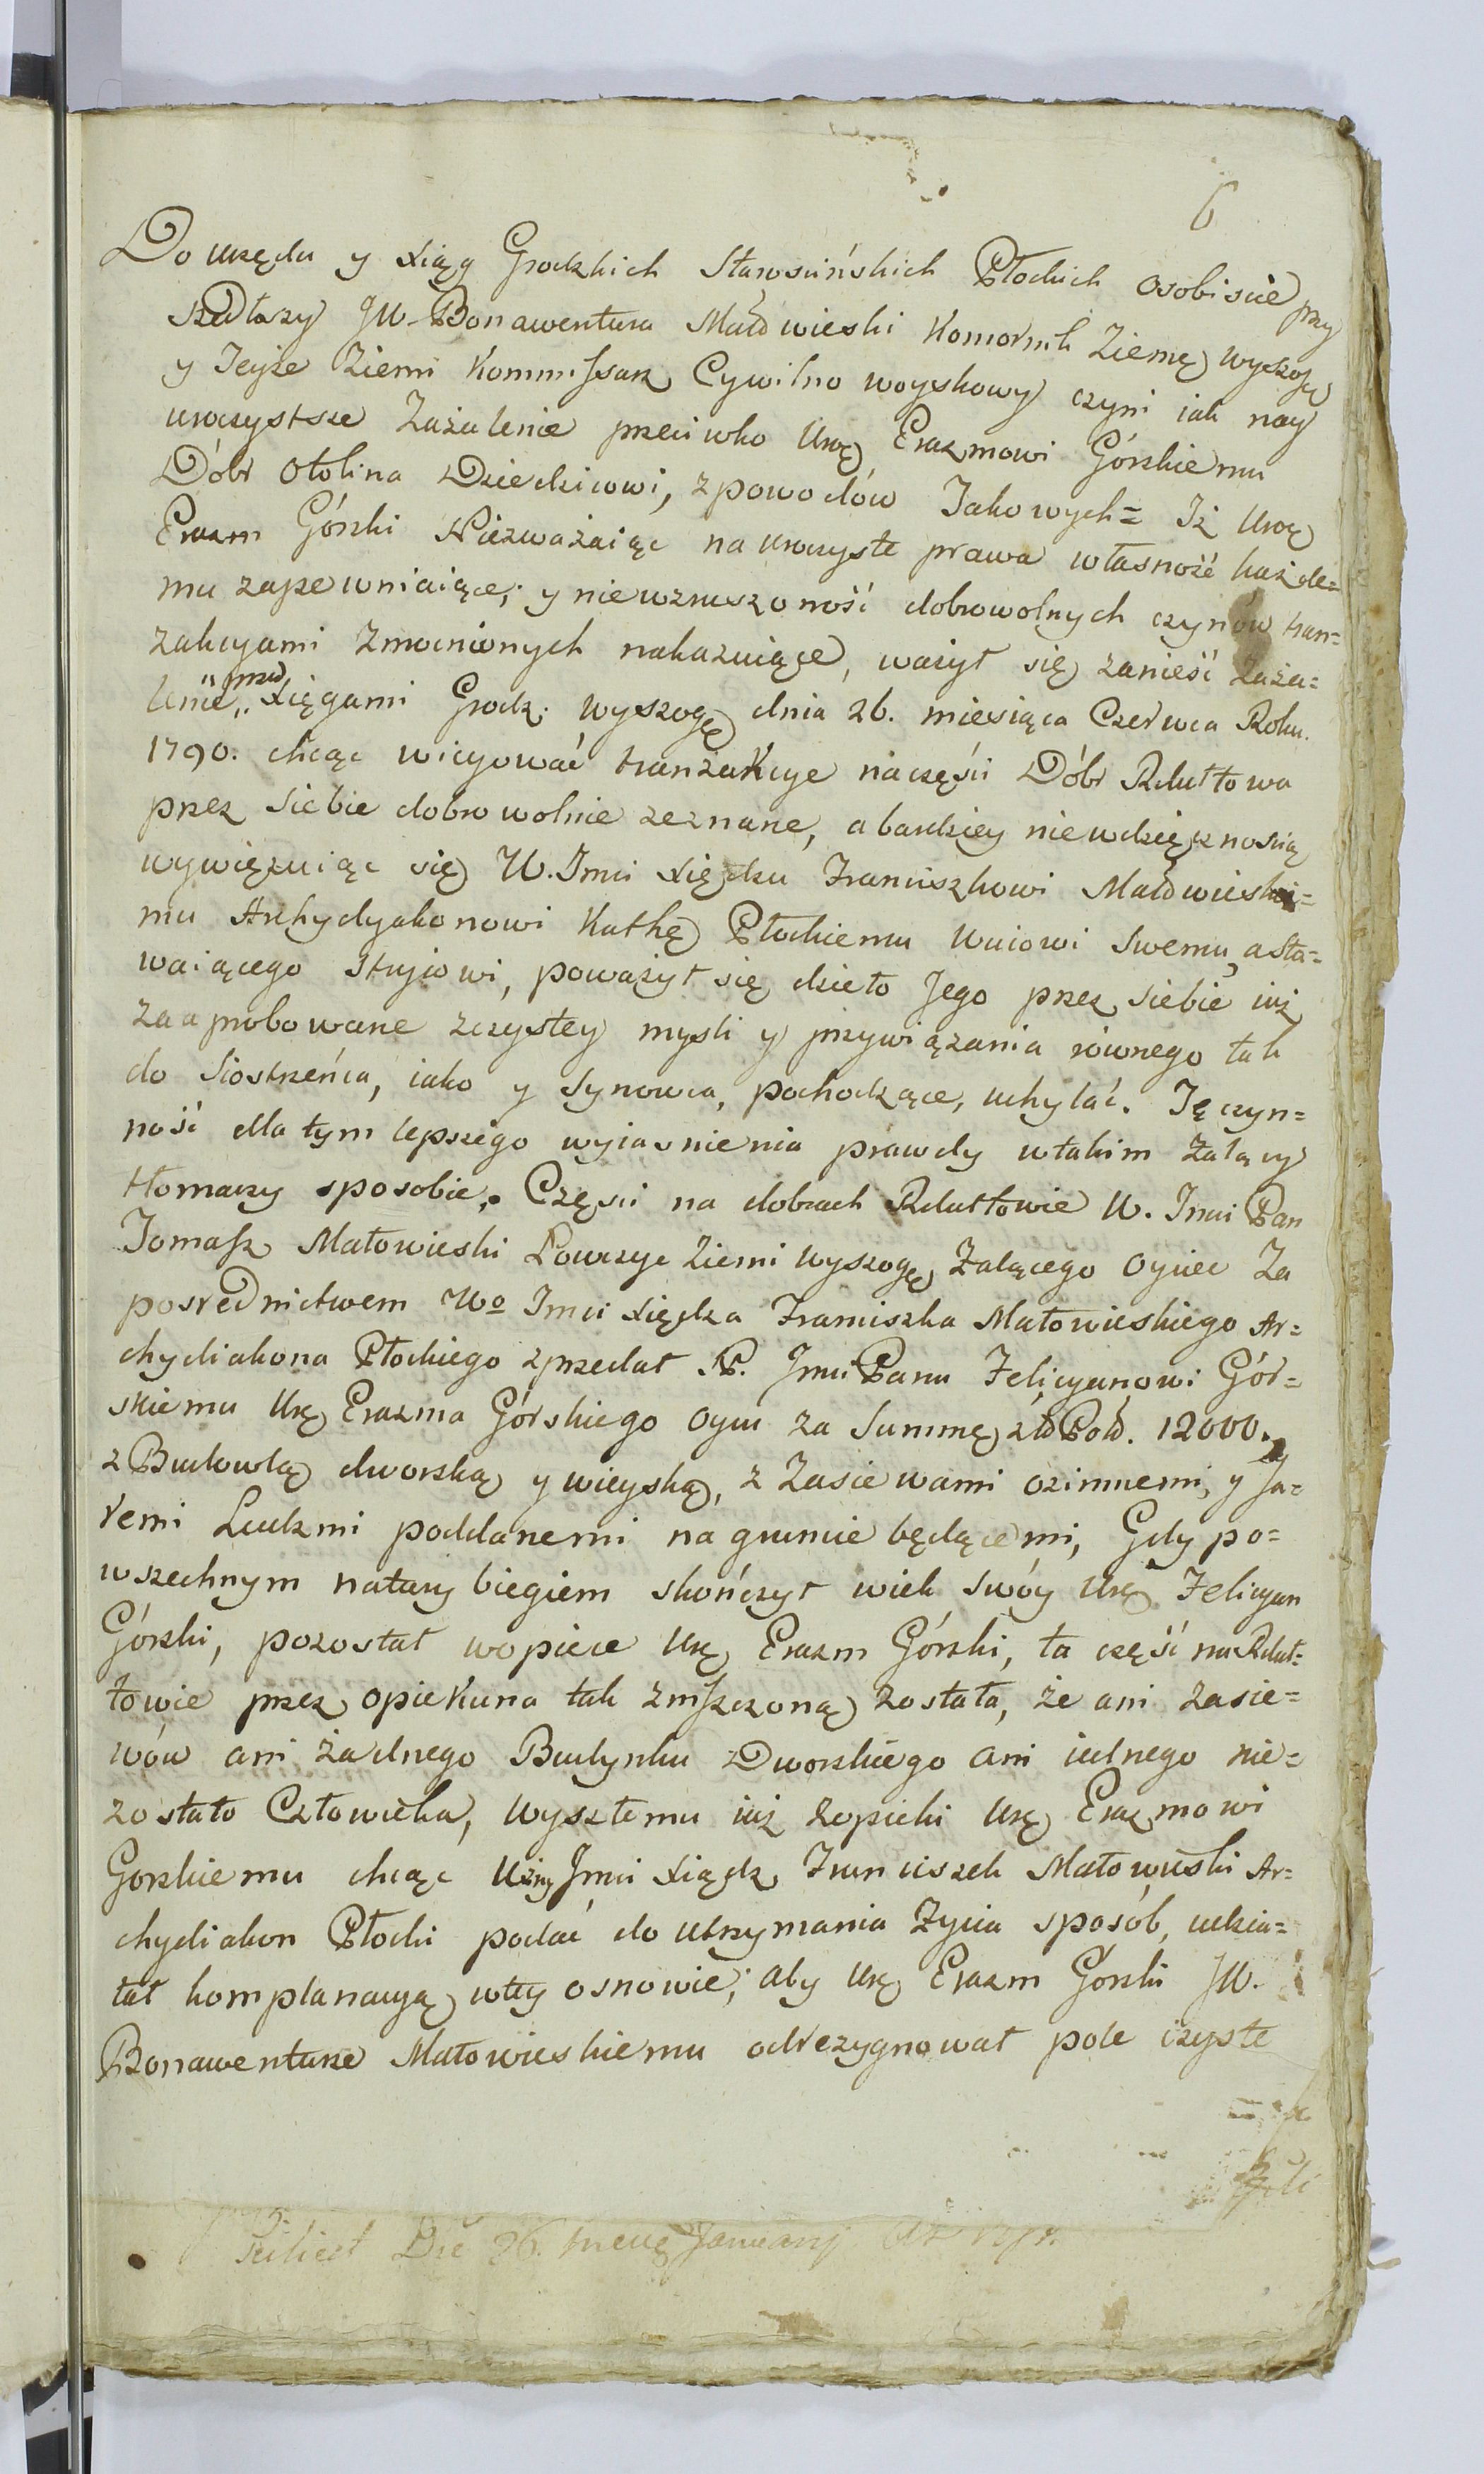 6
Do urzędu y xiąg Grodzkich Starościńskich Płockich osobiscie przy
szedłszy JW. Bonawentura Małowieski Komornik Ziemę Wyszogę
y Teyże Ziemi Kommissarz Cywilno woyskowy czyni iak nay
uroczystsze Zażalenie przeciwko Urę Erazmowi Górskiemu
Dóbr Otolina Dziedzicowi, z powodów Takowych = Iż Urę
Erazm Górski Niezważaiąc na uroczyste prawa własność każde=
mu zapewniaiące; y niewzruszoność dobrowolnych czynów tran=
zakcyami zmocnionych nakazuiące, ważył się zanieść Zaża=
lenie „przed Xięgami Grodz: Wyszogę dnia 26. miesiąca Czerwca Roku.
1790. chcąc wicyować tranzakcye na części Dóbr Rdułtowa
przez Siebie dobrowolnie zeznane, a bardziey niewdzięcznością
wywięzuiąc się W. Jmci Xiędzu Franciszkowi Małowieskie=
mu Archydyakonowi Kathę Płockiemu Wuiowi Swemu, a sta=
waiącego Stryiowi, poważył się dzieło Jego przez Siebie iuż
zaaprobowane z czystey mysli y przywiązania równego tak
do Siostrzeńca, iako y Synowca, pochodzące, uchylać. Tę czyn=
ność dla tym lepszego wyiasnienia prawdy w takim Żalący
tłomaczy sposobie. Części na dobrach Rdułtowie W. Jmci Pan
Tomasz Małowieski Łowczyc Ziemi Wyszogę Żalącego Oyciec Za
posrednictwem Wo Jmci Xiędza Franciszka Małowieskiego Ar=
chydiakona Płockiego zprzedał P. Jmci Panu Felicyanowi Gór=
skiemu Urę Erazma Górskiego Oycu za Summę złł Poł. 12000.
z Budowlą dworską y wieyską, z Zasiewami ozimnemi, y Ja=
remi Ludzmi poddanemi na gruncie będącemi, Gdy po=
wszechnym natury biegiem skończył wiek Swóy Urę Felicyan
Górski, pozostał w opiece Urę Erazm Górski, ta część na Rduł=
towie przez opiekuna tak zniszczoną została, że ani zasie=
wów ani żadnego Budynku Dworskiego ani iednego nie=
zostało Człowieka, Wyszłemu iuż z opieki Urę Erazmowi
Gorskiemu chcąc Jmci Xiądz Franciszek Małowieski Ar=
chydiakon Płocki podać do utrzymania życia sposób, udzia=
łał komplanacyą w tey osnowie; aby Urę Erazm Górski JW.
Bonawenturze Małowieskiemu odrezygnował pole czyste
Die 26. Januarij